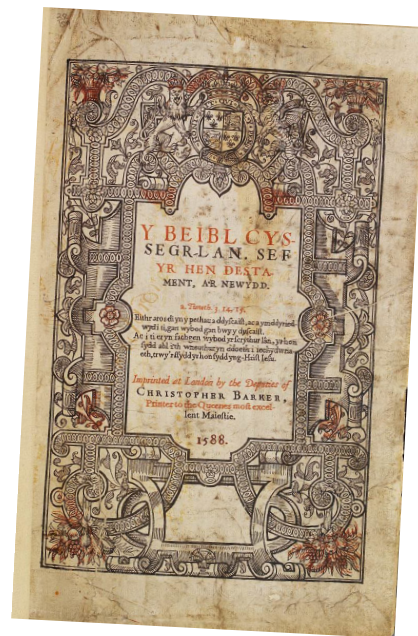 Y BEIBL CYS-
SEGR-LAN. SEF
YR HEN DESTA-
MENT, A'R NEWYDD.
2. Timoth. 3. 14, 15.
Eithr aros di yn y pethau a ddyscaist, ac a ymddyried
wyd i ti, gan wybod gan bwy y dyscaist.
Ac i ti er yn fachgen wybod yr scrythur lân, yr hon
sydd abl i'th wneuthur yn ddoeth i iechydwria-
eth, trwy'r ffydd yr hon sydd yng-Hrist Iesu.
Imprinted at London by the Deputies of
CHRISTOPHER BARKER,
Printer to the Queenes most excel-
lent Maiestie.
1588.